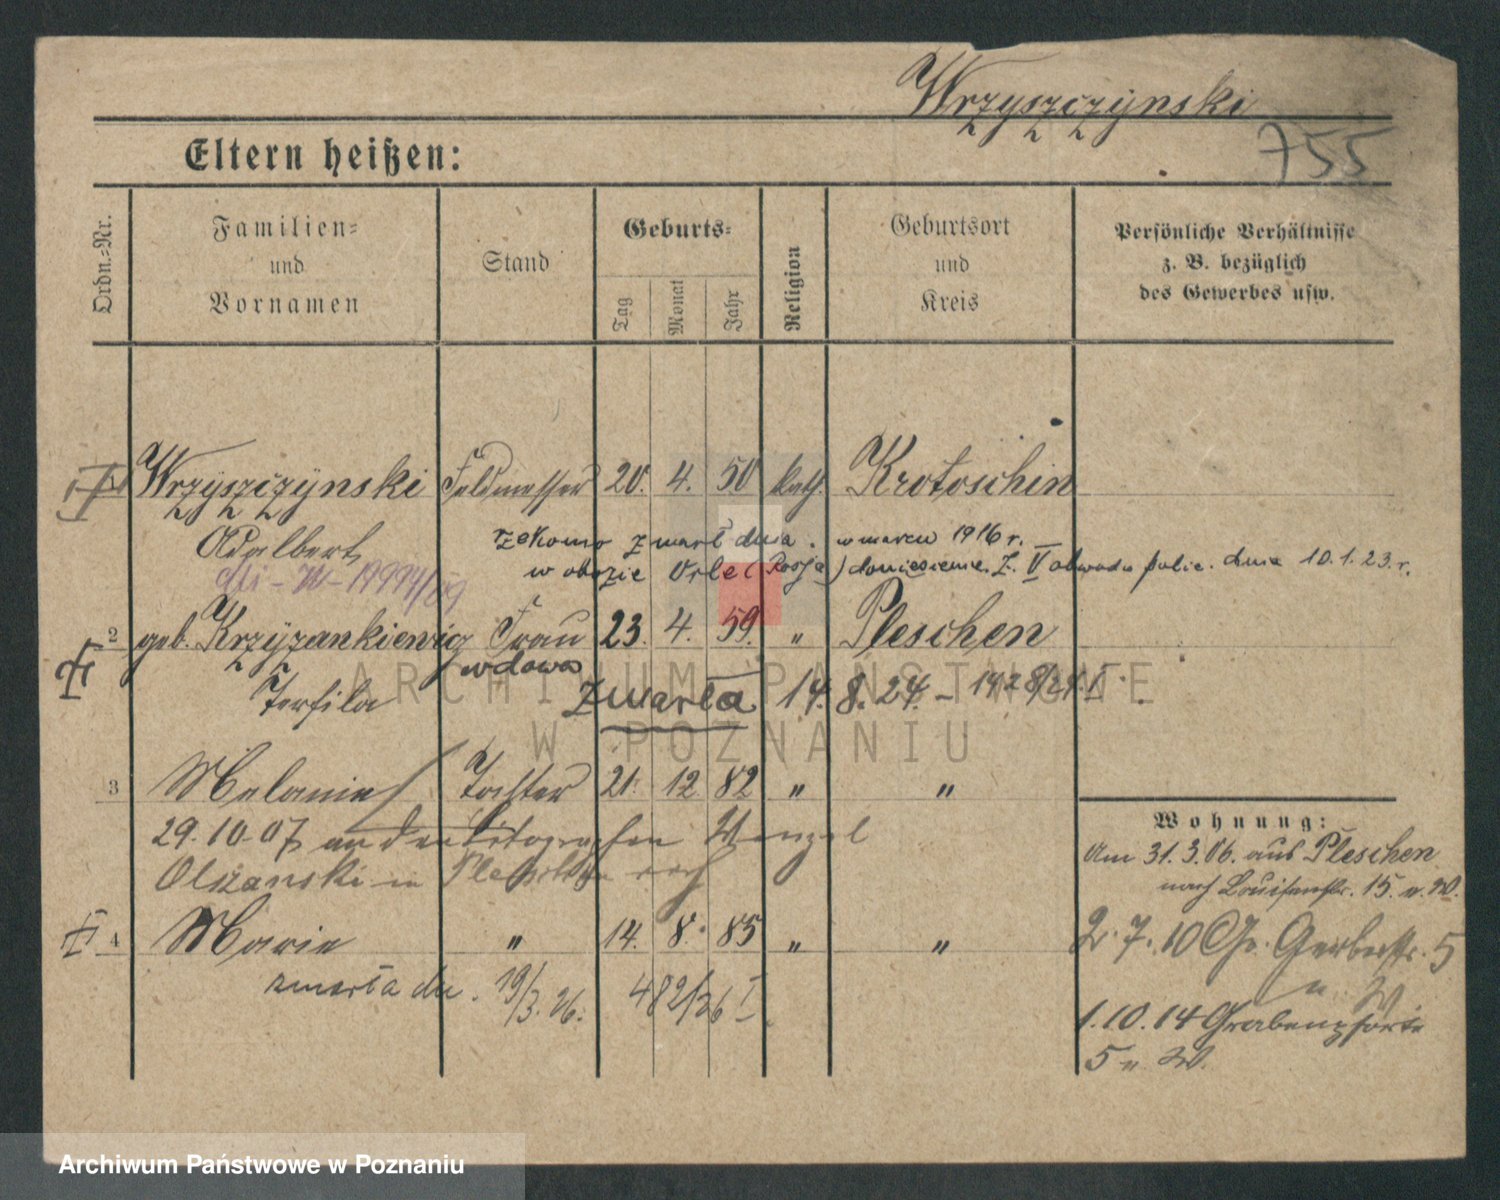 Wrzyszczynski
755
Eltern heißen:
Ordn.-Nr.
Familien- und Vornamen
Stand
Geburts-
Tag
Monat
Jahr
Religion
Geburtsort und Kreis
Persönliche Verhältnisse
z. B. bezüglich
des Gewerbes usw.
Wrzyszczynski Feldmesser 20. 4. 50 kath. Krotoschin
Adalbert
rzekomo zmarł dnia . w marcu 1916 r.
w obozie Orle (Rosja) doniesienie Z. V obwodu polic. dnia 10.1.23. r.
2 geb. Krzyzankiewicz Frau 23. 4. 59. " Pleschen
wdowa
Teofila zmarła 14. 8. 24. - 1428/24 I.
3 Melanie Tochter 21. 12 82 " "
29.10.07 an den Litographen Wenzel
Olszanski in Pleschen
4 Marie " 14. 8. 85 " "
zmarła dn. 19/3. 26. 482/26 I.
Wohnung:
Am 31.3.06. aus Pleschen
nach Louisenstr. 15. n. W.
2. 7. 10 Gr. Gerberstr. 5
n W.
1.10.14 Grabenpforte
5 n. W.
ARCHIWUM PAŃSTWOWE
W POZNANIU
Archiwum Państwowe w Poznaniu